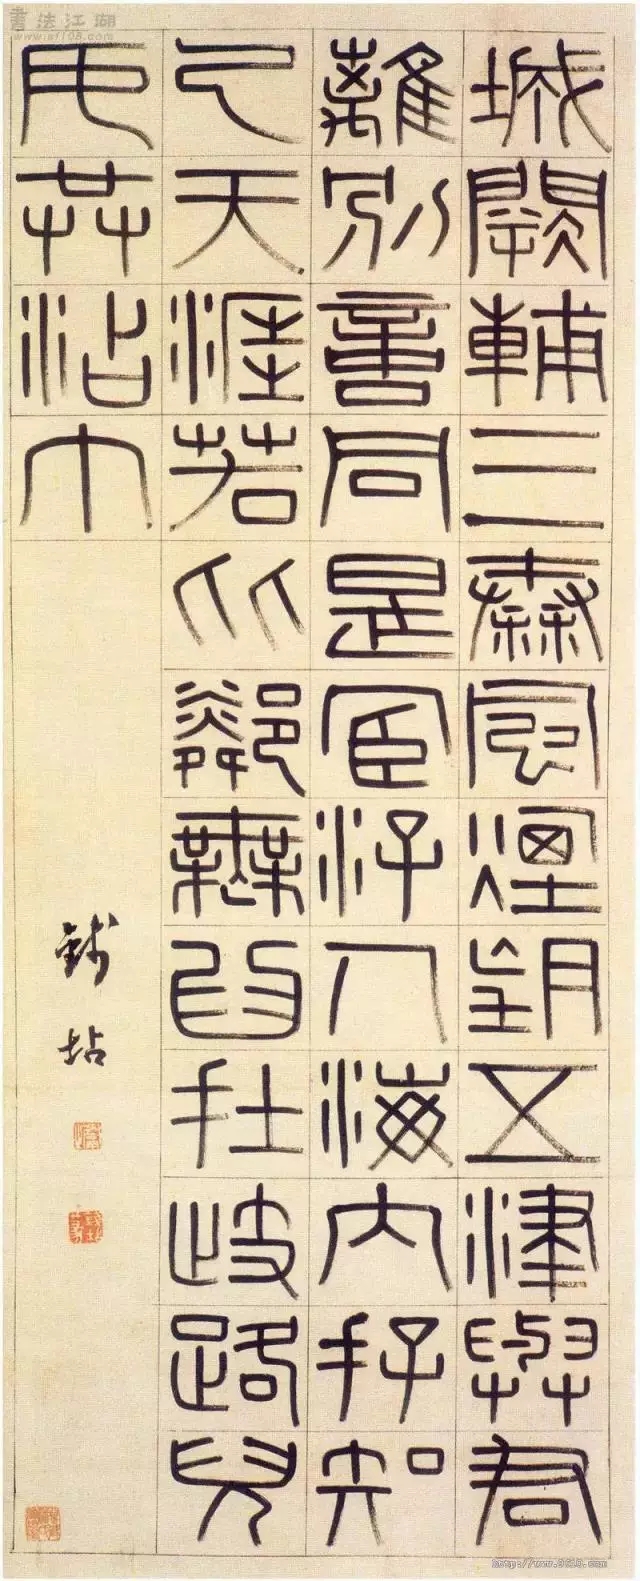 書法江湖
www.sf108.com
城闕輔三秦風煙望五津與君
離別意同是宦游人海內存知
己天涯若比鄰無為在歧路兒
女共沾巾
錢坫
http://www.9610.com